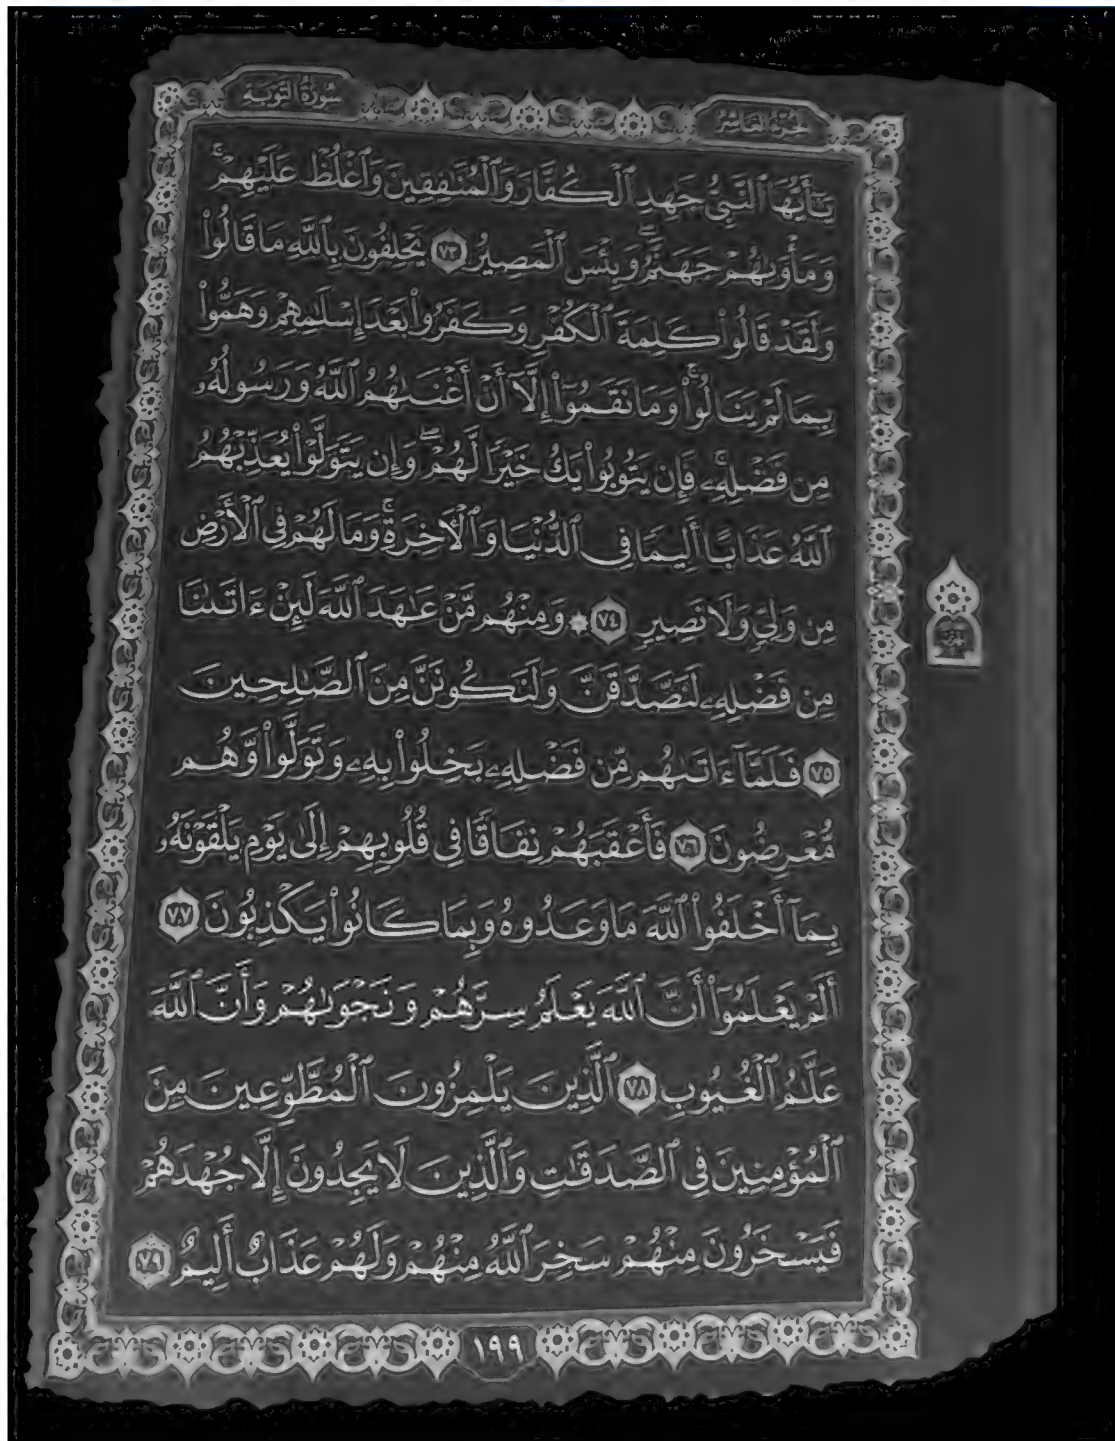 الجزء العاشر
سورة التوبة
يَٰٓأَيُّهَا ٱلنَّبِيُّ جَٰهِدِ ٱلْكُفَّارَ وَٱلْمُنَٰفِقِينَ وَٱغْلُظْ عَلَيْهِمْۚ
وَمَأْوَىٰهُمْ جَهَنَّمُۖ وَبِئْسَ ٱلْمَصِيرُ ٧٣ يَحْلِفُونَ بِٱللَّهِ مَا قَالُوا۟
وَلَقَدْ قَالُوا۟ كَلِمَةَ ٱلْكُفْرِ وَكَفَرُوا۟ بَعْدَ إِسْلَٰمِهِمْ وَهَمُّوا۟
بِمَا لَمْ يَنَالُوا۟ۚ وَمَا نَقَمُوٓا۟ إِلَّآ أَنْ أَغْنَىٰهُمُ ٱللَّهُ وَرَسُولُهُۥ
مِن فَضْلِهِۦۚ فَإِن يَتُوبُوا۟ يَكُ خَيْرًا لَّهُمْۖ وَإِن يَتَوَلَّوْا۟ يُعَذِّبْهُمُ
ٱللَّهُ عَذَابًا أَلِيمًا فِى ٱلدُّنْيَا وَٱلْءَاخِرَةِۚ وَمَا لَهُمْ فِى ٱلْأَرْضِ
مِن وَلِىٍّ وَلَا نَصِيرٍ ٧٤ ۞ وَمِنْهُم مَّنْ عَٰهَدَ ٱللَّهَ لَئِنْ ءَاتَىٰنَا
مِن فَضْلِهِۦ لَنَصَّدَّقَنَّ وَلَنَكُونَنَّ مِنَ ٱلصَّٰلِحِينَ
٧٥ فَلَمَّآ ءَاتَىٰهُم مِّن فَضْلِهِۦ بَخِلُوا۟ بِهِۦ وَتَوَلَّوا۟ وَّهُم
مُّعْرِضُونَ ٧٦ فَأَعْقَبَهُمْ نِفَاقًا فِى قُلُوبِهِمْ إِلَىٰ يَوْمِ يَلْقَوْنَهُۥ
بِمَآ أَخْلَفُوا۟ ٱللَّهَ مَا وَعَدُوهُ وَبِمَا كَانُوا۟ يَكْذِبُونَ ٧٧
أَلَمْ يَعْلَمُوٓا۟ أَنَّ ٱللَّهَ يَعْلَمُ سِرَّهُمْ وَنَجْوَىٰهُمْ وَأَنَّ ٱللَّهَ
عَلَّٰمُ ٱلْغُيُوبِ ٧٨ ٱلَّذِينَ يَلْمِزُونَ ٱلْمُطَّوِّعِينَ مِنَ
ٱلْمُؤْمِنِينَ فِى ٱلصَّدَقَٰتِ وَٱلَّذِينَ لَا يَجِدُونَ إِلَّا جُهْدَهُمْ
فَيَسْخَرُونَ مِنْهُمْ سَخِرَ ٱللَّهُ مِنْهُمْ وَلَهُمْ عَذَابٌ أَلِيمٌ ٧٩
١٩٩